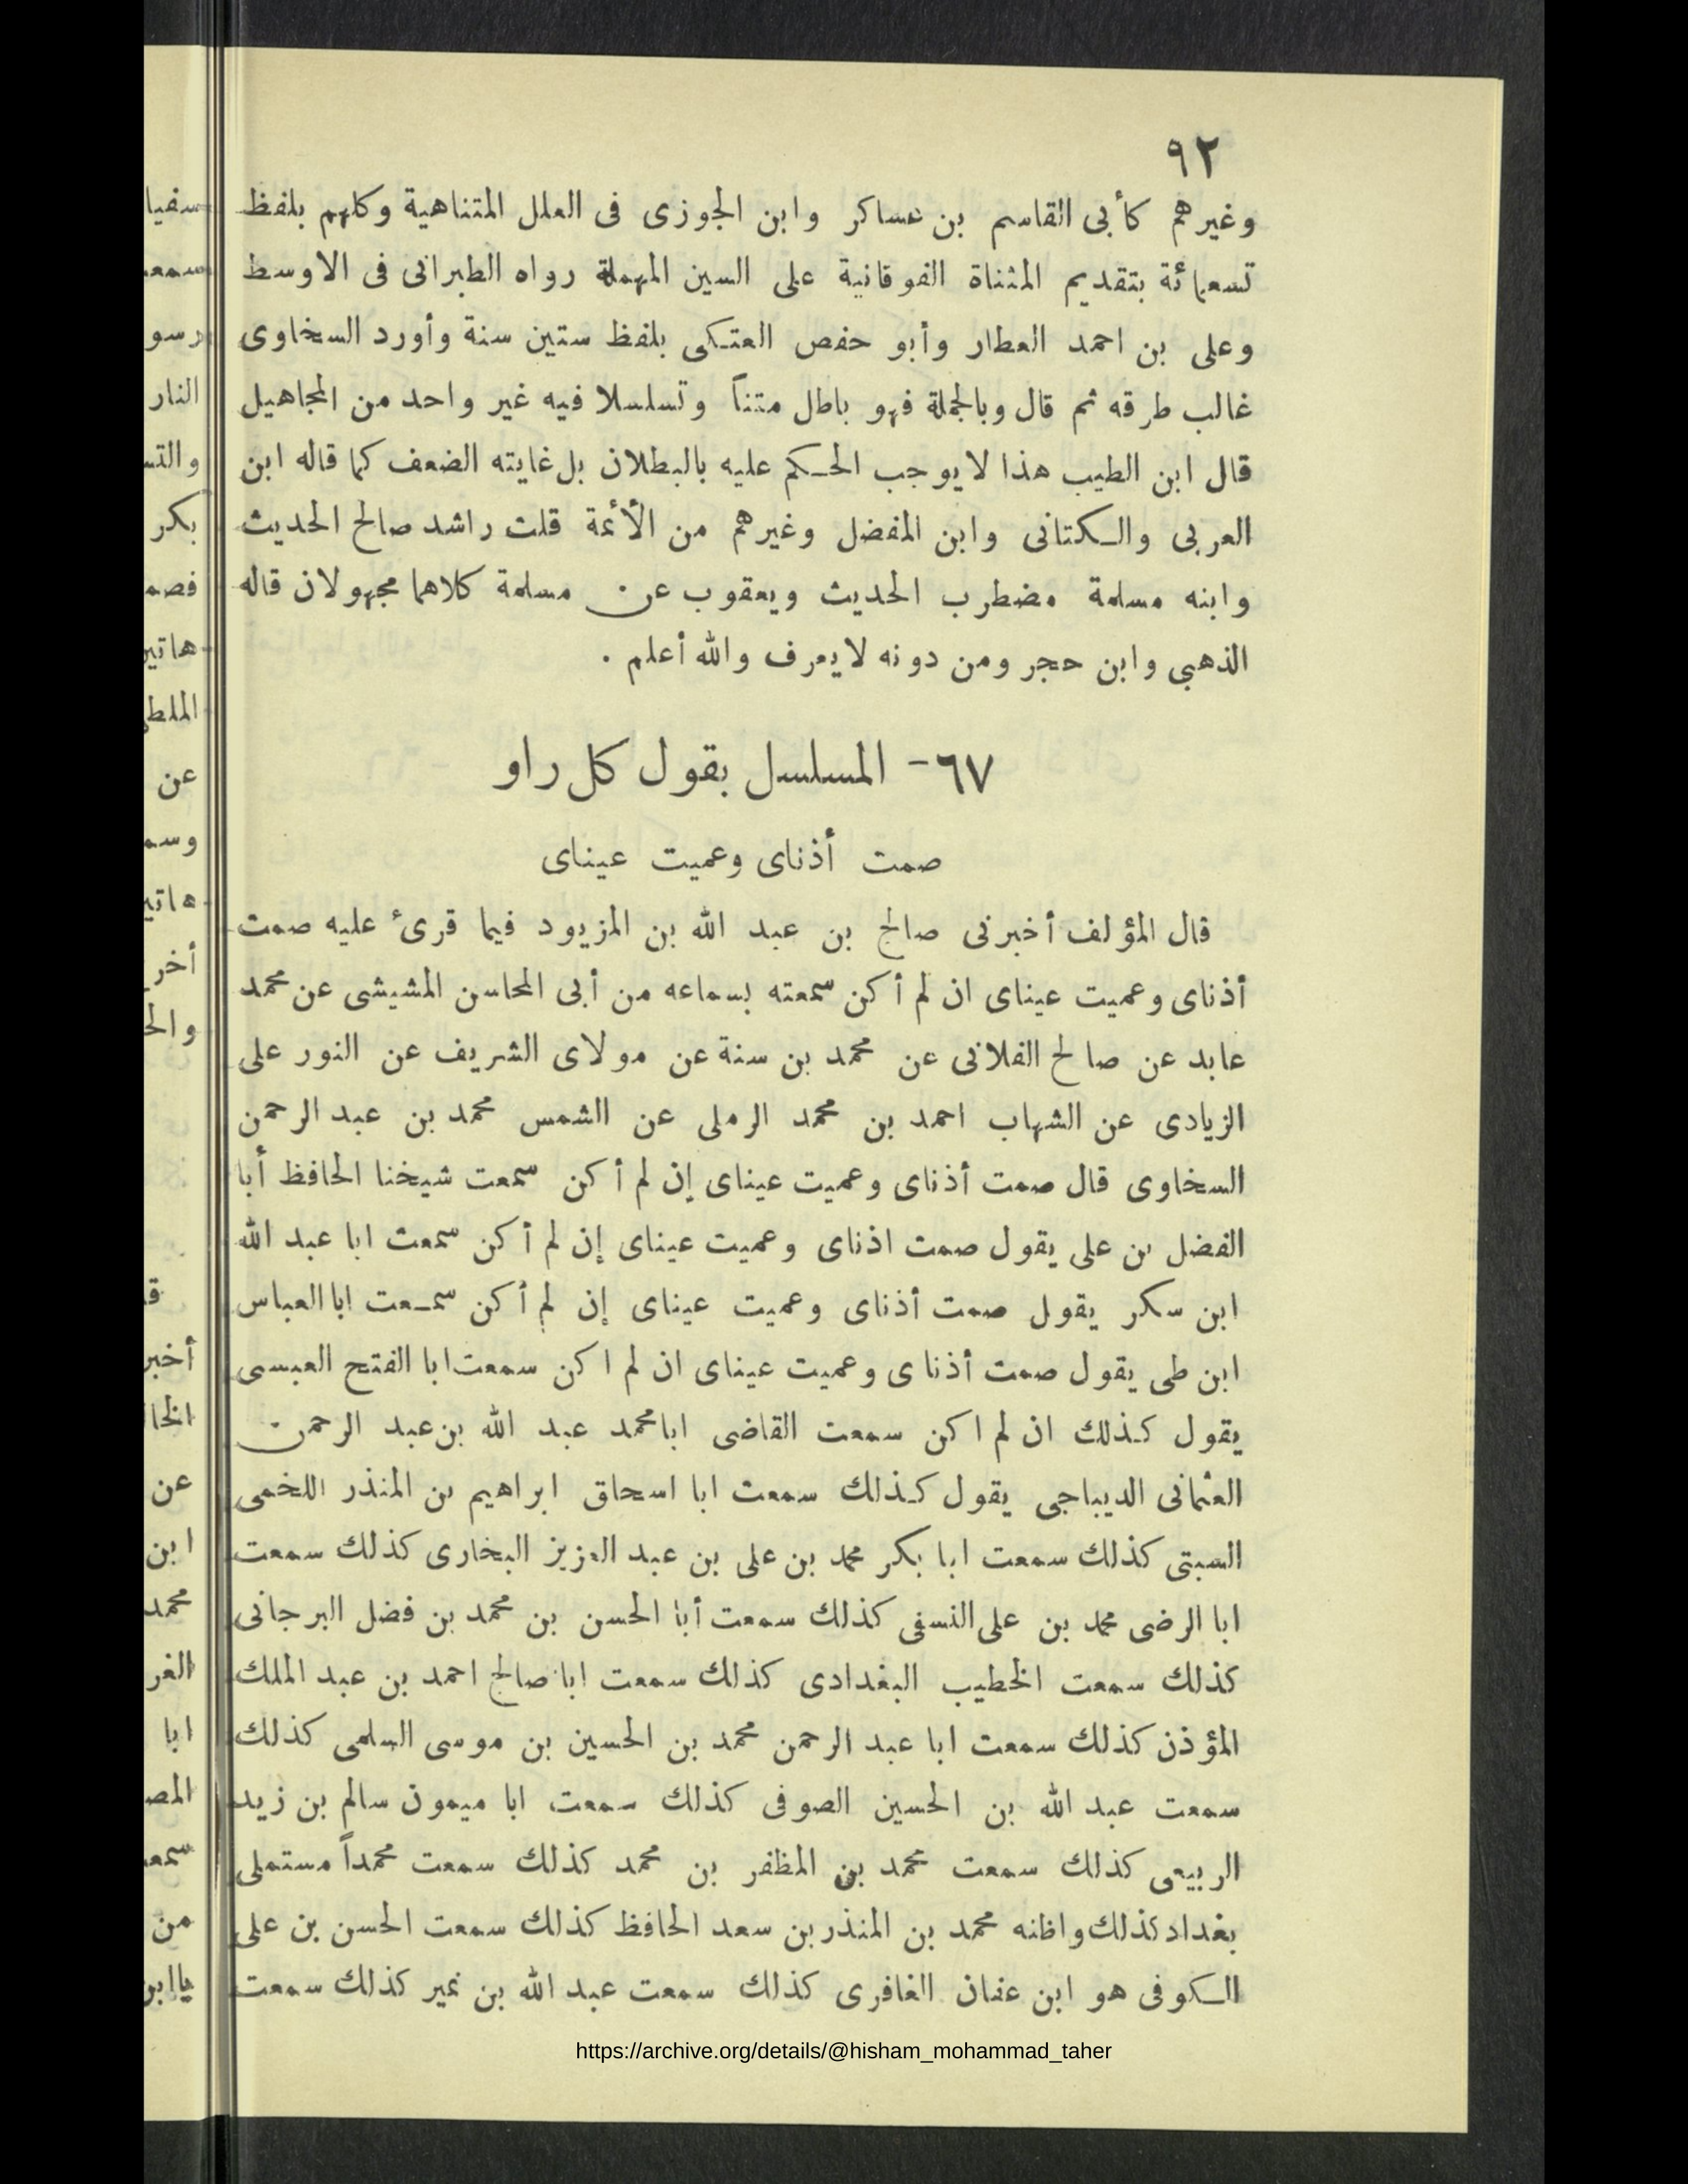 ٩٢
وغيرهم كأبى القاسم بن عساكر وابن الجوزى فى العلل المتناهية وكلهم بلفظ
تسعمائة بتقديم المثناة الفوقانية على السين المهملة رواه الطبرانى فى الاوسط
وعلى بن احمد العطار وأبو حفص العتكى بلفظ ستين سنة وأورد السخاوى
غالب طرقه ثم قال وبالجملة فهو باطل متناً وتسلسلا فيه غير واحد من المجاهيل
قال ابن الطيب هذا لايوجب الحكم عليه بالبطلان بل غايته الضعف كما قاله ابن
العربى والكتانى وابن المفضل وغيرهم من الأئمة قلت راشد صالح الحديث
وابنه مسلمة مضطرب الحديث ويعقوب عن مسلمة كلاهما مجهولان قاله
الذهبي وابن حجر ومن دونه لايعرف والله أعلم .
٦٧ - المسلسل بقول كل راو
صمت أذناى وعميت عيناى
قال المؤلف أخبرنى صالح بن عبد الله بن المزيود فيما قرئ عليه صمت
أذناى وعميت عيناى ان لم أكن سمعته بسماعه من أبى المحاسن المشيشى عن محمد
عابد عن صالح الفلانى عن محمد بن سنة عن مولاى الشريف عن النور على
الزيادى عن الشهاب احمد بن محمد الرملى عن الشمس محمد بن عبد الرحمن
السخاوى قال صمت أذناى وعميت عيناى إن لم أكن سمعت شيخنا الحافظ أبا
الفضل بن على يقول صمت اذناى وعميت عيناى إن لم أكن سمعت ابا عبد الله
ابن سكر يقول صمت أذناى وعميت عيناى إن لم أكن سمعت ابا العباس
ابن طى يقول صمت أذناى وعميت عيناى ان لم اكن سمعت ابا الفتح العبسى
يقول كذلك ان لم اكن سمعت القاضى ابا محمد عبد الله بن عبد الرحمن
العثمانى الديباجى يقول كذلك سمعت ابا اسحاق ابراهيم بن المنذر اللخمى
السبتى كذلك سمعت ابا بكر محمد بن على بن عبد العزيز البخارى كذلك سمعت
ابا الرضى محمد بن على النسفى كذلك سمعت أبا الحسن بن محمد بن فضل البرجانى
كذلك سمعت الخطيب البغدادى كذلك سمعت ابا صالح احمد بن عبد الملك
المؤذن كذلك سمعت ابا عبد الرحمن محمد بن الحسين بن موسى السلمى كذلك
سمعت عبد الله بن الحسين الصوفى كذلك سمعت ابا ميمون سالم بن زيد
الربيعى كذلك سمعت محمد بن المظفر بن محمد كذلك سمعت محمداً مستملى
بغداد كذلك واظنه محمد بن المنذر بن سعد الحافظ كذلك سمعت الحسن بن على
الكوفى هو ابن عفان الغافرى كذلك سمعت عبد الله بن نمير كذلك سمعت
https://archive.org/details/@hisham_mohammad_taher